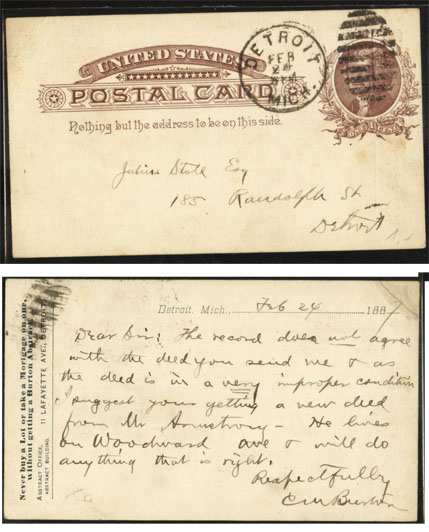 UNITED STATES
POSTAL CARD
Nothing but the address to be on this side.
DETROIT
FEB
24
MICH.
Esq
185 Randolph St
Detroit
Never buy a Lot or take a Mortgage on one,
without getting a Burton Abstract.
ABSTRACT OFFICE, 11 LAFAYETTE AVE, DETROIT
ABSTRACT BUILDING.
Detroit, Mich., Feb 24 188
Dear Sir: The record does not agree
with the deed you send me & as
the deed is in a very improper condition
I suggest your getting a new deed
from Mr Armstrong - He lives
on Woodward ave & will do
anything that is right.
Respectfully
C M Burton